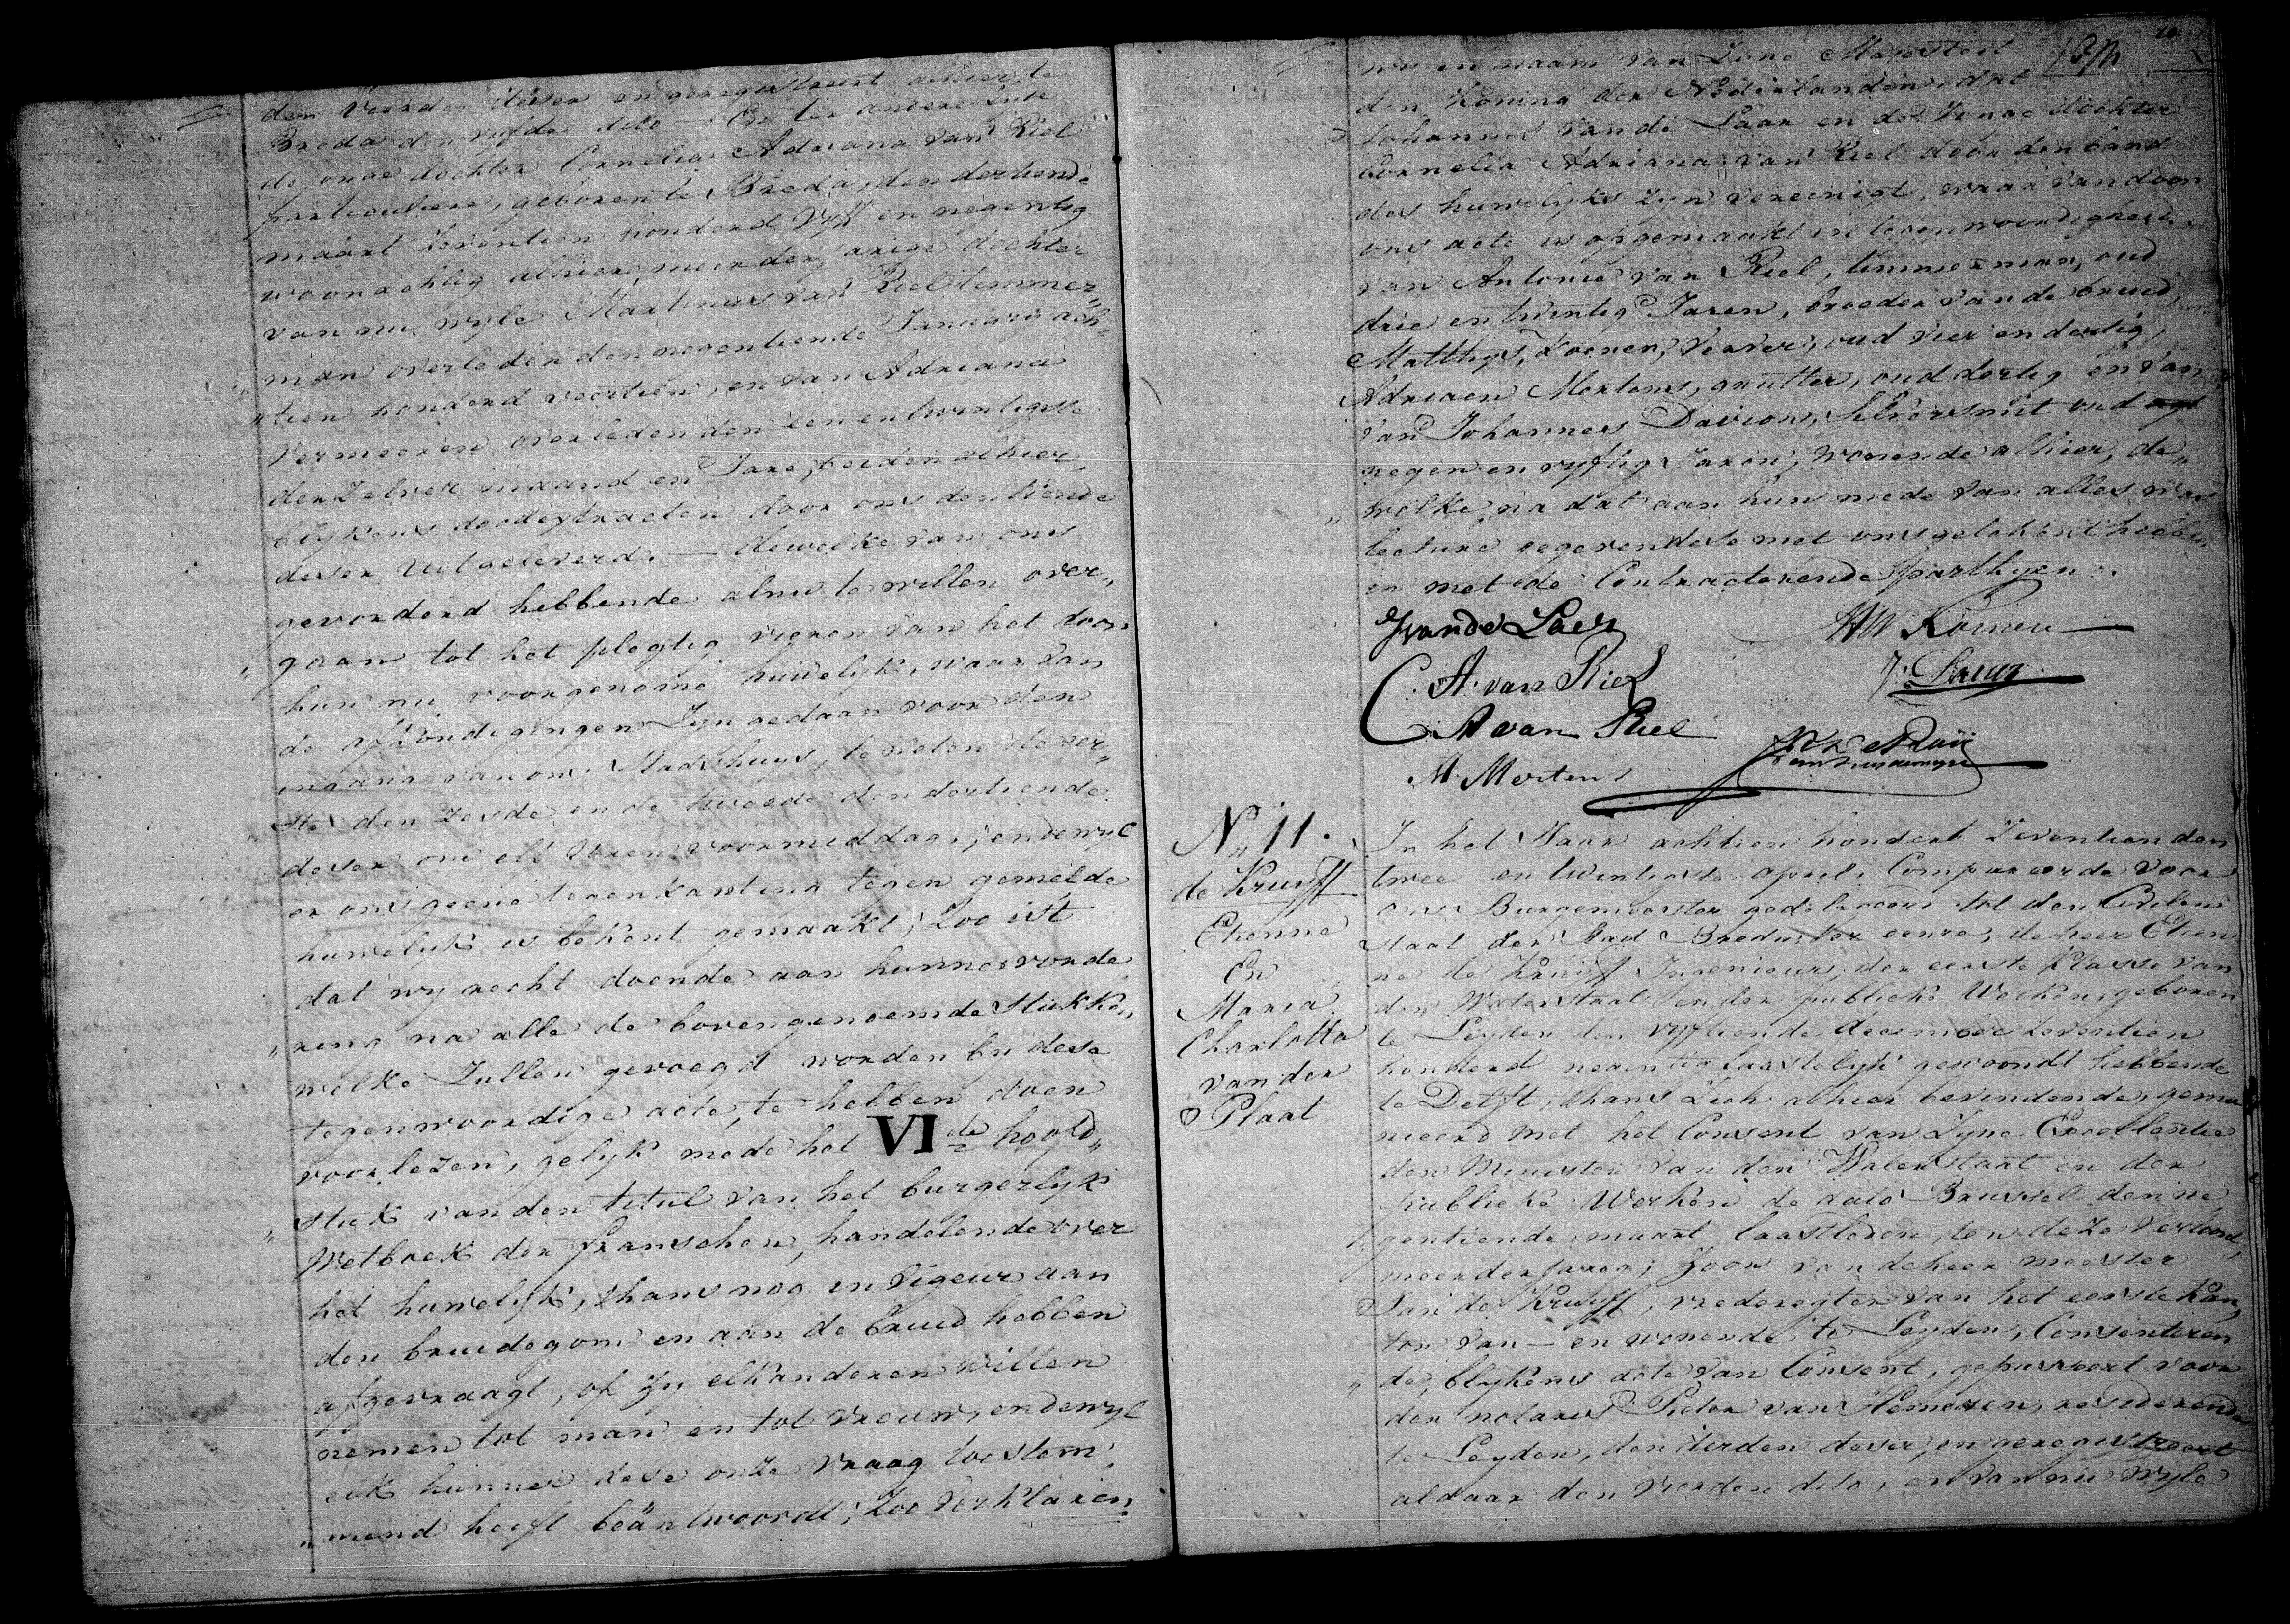 den vierden deser en geregistreert alhier te
Breda den vyfde dito — En ter andere zyde
de jonge dochter Cornelia Adriana van Riel
particuliere, geboren te Breda, den dertiende
maart Zeventien honderd Vyff en negentig
woonachtig alhier, meerderjarige dochter
van nu wyle Martinus van Riel timmer„
„man overleden den negentiende Januarij ach„
„tien honderd veertien, en van Adriana
Vermeeren overleden den een en twintigste
der zelver maand en Jare, beiden alhier
blykens doodextracten door ons den tiende
deser uitgeleverd. — dewelke van ons
gevorderd hebbende alnu te willen over„
„gaan tot het plegtig vieren van het door
hun nu voorgenome huwelijk, waar van
de afkondigingen Zijn gedaan voor den
ingang van ons Stadshuys, te weten de eer„
„ste den zesde en de tweede den dertiende
deser om elf uren voormiddags; en dewyl
er ons geene tegenkanting tegen gemelde
huwelijk is bekent gemaakt; Zoo ist
dat wy recht doende aan hunne vorde„
„ring na alle de bovengenoemde Stukken
welke Zullen gevoegd worden by dese
tegenwoordige acte, te hebben doen
voorlezen, gelyk mede het VIde hoofd„
„stuk van den titul van het burgerlyk
Wetboek der franschen, handelende over
het huwelijk, thans nog in vigeur aan
den bruidegom en aan de bruid hebben
afgevraagt, of Zy elkanderen willen
nemen tot man en tot vrouw, en dewyl
elk hunner dese onze vraag toestem„
„mend heeft beäntwoordt; Zoo verklaren
wy in naam van Zyne Majesteit
den Koning der Nederlanden, dat
Johannes van de Laar en de Jonge dochter
Cornelia Adriana van Riel door den band
des huwelyks zyn vereenigt, waar van door
ons acte is opgemaakt in tegenwoordigheid
van Antonie van Riel, timmerman, oud
drie en twintig Jaren, broeder van de bruid,
Matthys Koenen, verver, oud vier en dertig,
Adriaen Mertens, grutter, oud dertig en van
van Johannes Davion, Silversmit oud
negen en vyftig Jaren, wonende alhier, de„
„welke na dat aan hun mede van alles was
lecture gegeven dese met ons getekent hebben
en met de Contracterende parthyen.
J van de Laar
AM Koenen
C. A. van Riel
J.
A van Riel
M. Mertens
N„ 11.
de Kruyff
Etienne
En
Maria
Charlotta
van der
Plaat
In het Jaar achtien hondert Zeventien den
twee en twintigste april, Compareerde voor
ons Burgemeester gedelegeert tot den Civilen
Staat der Stad Breda ter eenre, de heer Etien
ne de Kruyff Ingenieur der eerste Klasse van
den Waterstaat en der publieke Werken, geboren
te Leyden den vyftiende december Zeventien
honderd negentig laastelyk gewoondt hebbende
te Delft, thans Zich alhier bevindende, gemu
nieerd met het Consent van Zyne Excellentie
den Minister van den Waterstaat en der
publieke Werken de dato Brussel den ne„
„gentiende maart laastleden, ten deze vertoond,
meerderjarig, Zoon van de heer meester
Jan de Kruyff, vrederegter van het eerste Kan„
ton van — en wonende te Leyden, Consenteren
„de, blykens acte van Consent, gepasseert voor
den notaris Pieter van Hemeren, residerende
te Leyden, den derden deser, en geregistreert
aldaar den vierden dito, en van nu wyle